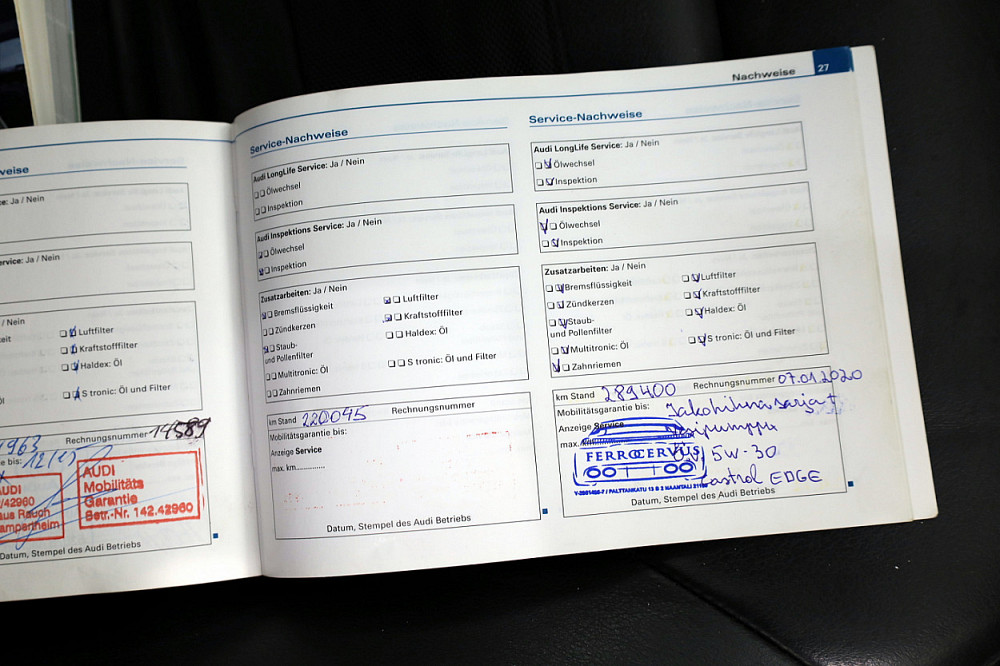 Nachweise 27
weise
ce: Ja / Nein
ervice: Ja / Nein
/ Nein
Luftfilter
Kraftstofffilter
Haldex: Öl
S tronic: Öl und Filter
Rechnungsnummer 14589
1963
e bis: 12/
AUDI
Mobilitäts
Garantie
Betr.-Nr. 142.42960
AUDI
/42960
aus Rauch
ampertheim
Datum, Stempel des Audi Betriebs
Service-Nachweise
Audi LongLife Service: Ja / Nein
Ölwechsel
Inspektion
Audi Inspektions Service: Ja / Nein
Ölwechsel
Inspektion
Zusatzarbeiten: Ja / Nein
Bremsflüssigkeit
Luftfilter
Zündkerzen
Kraftstofffilter
Staub-
und Pollenfilter
Haldex: Öl
Multitronic: Öl
S tronic: Öl und Filter
Zahnriemen
km Stand 220045 Rechnungsnummer
Mobilitätsgarantie bis:
Anzeige Service
max. km.............
Datum, Stempel des Audi Betriebs
Service-Nachweise
Audi LongLife Service: Ja / Nein
Ölwechsel
Inspektion
Audi Inspektions Service: Ja / Nein
Ölwechsel
Inspektion
Zusatzarbeiten: Ja / Nein
Bremsflüssigkeit
Luftfilter
Zündkerzen
Kraftstofffilter
Staub-
und Pollenfilter
Haldex: Öl
Multitronic: Öl
S tronic: Öl und Filter
Zahnriemen
km Stand 289400 Rechnungsnummer 07.01.2020
Mobilitätsgarantie bis: Jakohihnasarja +
Anzeige Service Vesipumppu
max. km
FERROCERVUS
Öljy 5W-30
Castrol EDGE
PALTTANKATU 13 B 2 NAANTALI
Datum, Stempel des Audi Betriebs